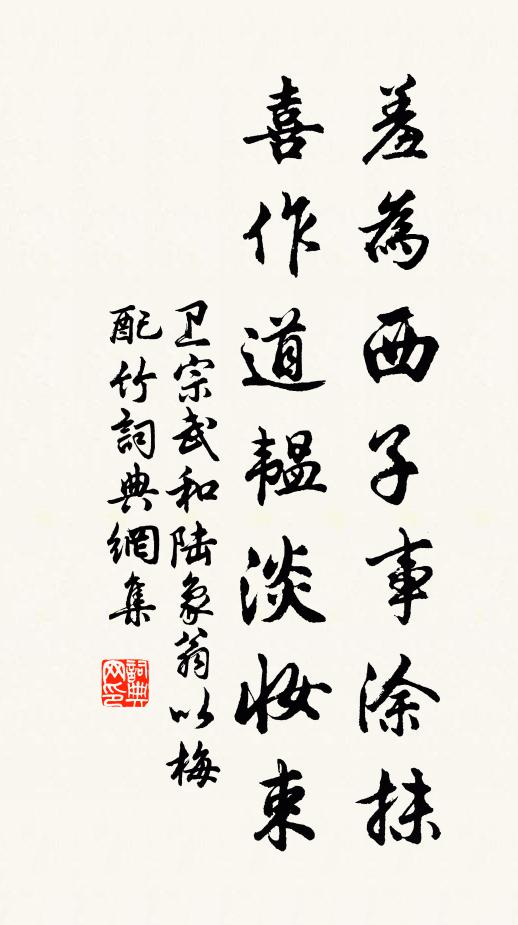 羞為西子事涂抹
喜作道韫淡妆束
卫宗武和陆象翁以梅
配竹詞典網集
詞典网印